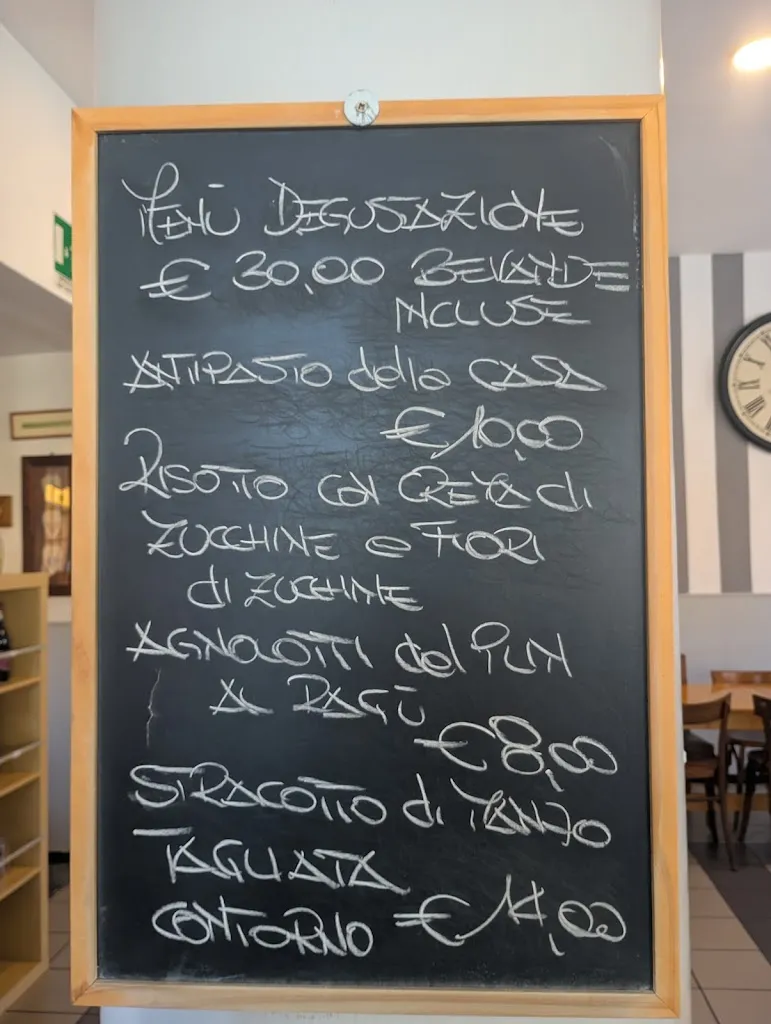 MENÙ DEGUSTAZIONE
€ 30,00 BEVANDE
INCLUSE
ANTIPASTO della CASA
€ 10,00
RISOTTO CON CREMA di
ZUCCHINE e FIORI
di ZUCCHINE
AGNOLOTTI del PLIN
AL RAGÙ
€ 8,00
STRACOTTO di MANZO
TAGLIATA
CONTORNO € 14,00